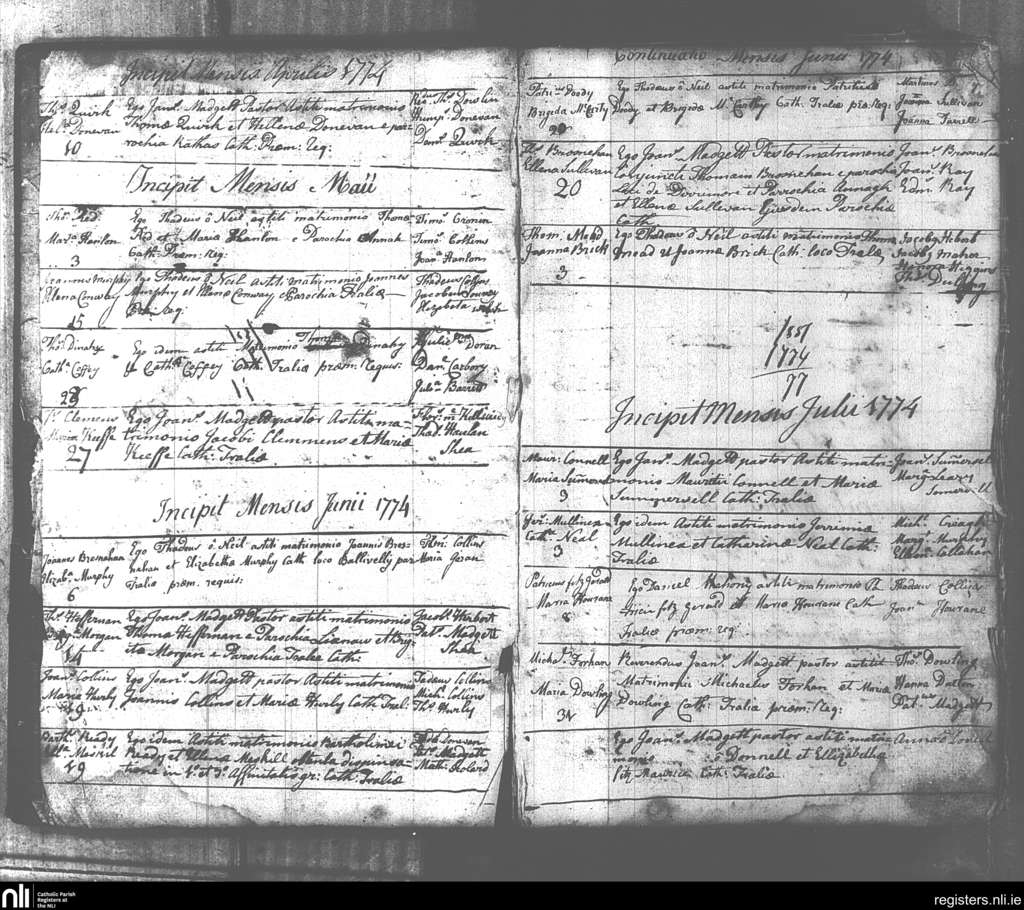 Incipit Mensis Aprilis 1774
Thos Quirk
Hele. Donevan
10
Ego Joans. Madgett Pastor Astiti matrimonio
Thomæ Quirk et Hellenæ Donevan e pa-
rochia Rahas Cath: Præm: Req:
Revdus Thos Dowlin
Hump: Donevan
Danl Quirk
Incipit Mensis Maii
Thos Red
Mara Hanlon
3
Ego Thadeus ô Neil astiti matrimonio Thomæ
Red et Maria Hanlon e Parochia Annah
Cath: Præm: Req:
Timos Cronin
Timos Collins
Joana Hanlon
Joannes Murphy
Elena Conway
15
Ego Thadeus ô Neil asti: matrimonio Joannes
Murphy et Elena Conway e Parochia Traliæ
Req:
Thadeus Collins
Jacobus Conway
Elizabeta
Thos Dinahy
Catha Coffey
28
Ego idem astiti Matrimonio Thomæ Dinahy
et Catha Coffey Cath: Traliæ præm: Requis:
Doran
Danl Carbory
Julia Barrett
Clemens
Maria Keeffe
27
Ego Joans. Madgett pastor Astiti ma-
trimonio Jacobi Clemmens et Mariæ
Keeffe Cath: Traliæ
Thads Hanlan
Shea
Incipit Mensis Junii 1774
Joannes Bresnahan
Elizabs Murphy
6
Ego Thadeus ô Neil astiti matrimonio Joannis Bres-
nahan et Elizabetha Murphy Cath loco Ballivelly par
Traliæ præm: requis:
Thos: Collins
Maria Goran
Thos Heffernan
Morgan
14
Ego Joans. Madgett Pastor astiti matrimonio
Thomæ Heffernan e Parochia et Brig-
itæ Morgan e Parochia Tralee Cath:
Jacobs Herbert
Pats Madgett
Shea
Joans Collins
Maria Hurly
19
Ego Joans. Madgett pastor Astiti matrimonio
Joannis Collins et Mariæ Hurly Cath: Tral:
Tadeus Collins
Michs Collins
Thos Hurly
Barths Ready
Meskil
19
Ego idem Astiti matrimonio Bartholimei
Ready et Meskill obtenta dispensa-
tione in 4o et 3o Affinitatis gr: Cath: Traliæ
Donevan
Madgett
Math: Roland
Continuatio Mensis Junii 1774
Patrius Doody
Brigeda Mc Carty
20
Ego Thadeus ô Neil astiti matrimonio Patricius
Doody et Brigida Mc Carthy Cath: Traliæ præ: Req:
Joanna Sullivan
Joanna Farrell
Thos Brosnehan
Ellena Sullivan
20
Ego Joans. Madgett Pastor matrimonio
Conjuncti Thomam Brosnehan e parochia
et Parochia Annagh
et Ellenæ Sullivan Ejusdem Parochiæ
Cath:
Joans. Brosnehan
Joans. Ray
Edms. Ray
Thom: Mead
Joanna Brick
3
Ego Thadeus ô Neil astiti matrimonio Thomæ
Mead et Joanna Brick Cath: loco Traliæ
Jacobs Hebert
Jacobs Maher
1851
1774
77
Incipit Mensis Julii 1774
Maur: Connell
Maria Sumersel
3
Ego Jans. Madgett pastor Astiti matri-
monio Mauritii Connell et Mariæ
Summersell Cath: Traliæ
Joans. Sumersell
Marga Leary
Jer: Mullinea
Catha Neal
3
Ego idem Astiti matrimonio Jerimiæ
Mullinea et Catharinæ Neal Cath:
Traliæ
Michs. Creagh
Marga Murphy
Ellena Callehan
Patricius fitz Gerald
Maria Hourane
8
Ego Daniel Mahony astiti matrimonio Pa
tricii fitz Gerald et Maria Hourane Cath
Traliæ præm: req:
Thadeus Collins
Joana Hourane
Michs. Forhan
Maria Dowling
31
Reverendus Joans. Madgett pastor astitit
Matrimonii Michaelis Forhan et Mariæ
Dowling Cath: Traliæ præm: Req:
Thos. Dowling
Hanna Dalton
Patius Madgett
Ego Joans. Madgett pastor astiti matri-
monio ô Donnell et Ellizabethæ
fitz Maurice Cath: Traliæ
nli
Catholic Parish
Registers at
the NLI
registers.nli.ie